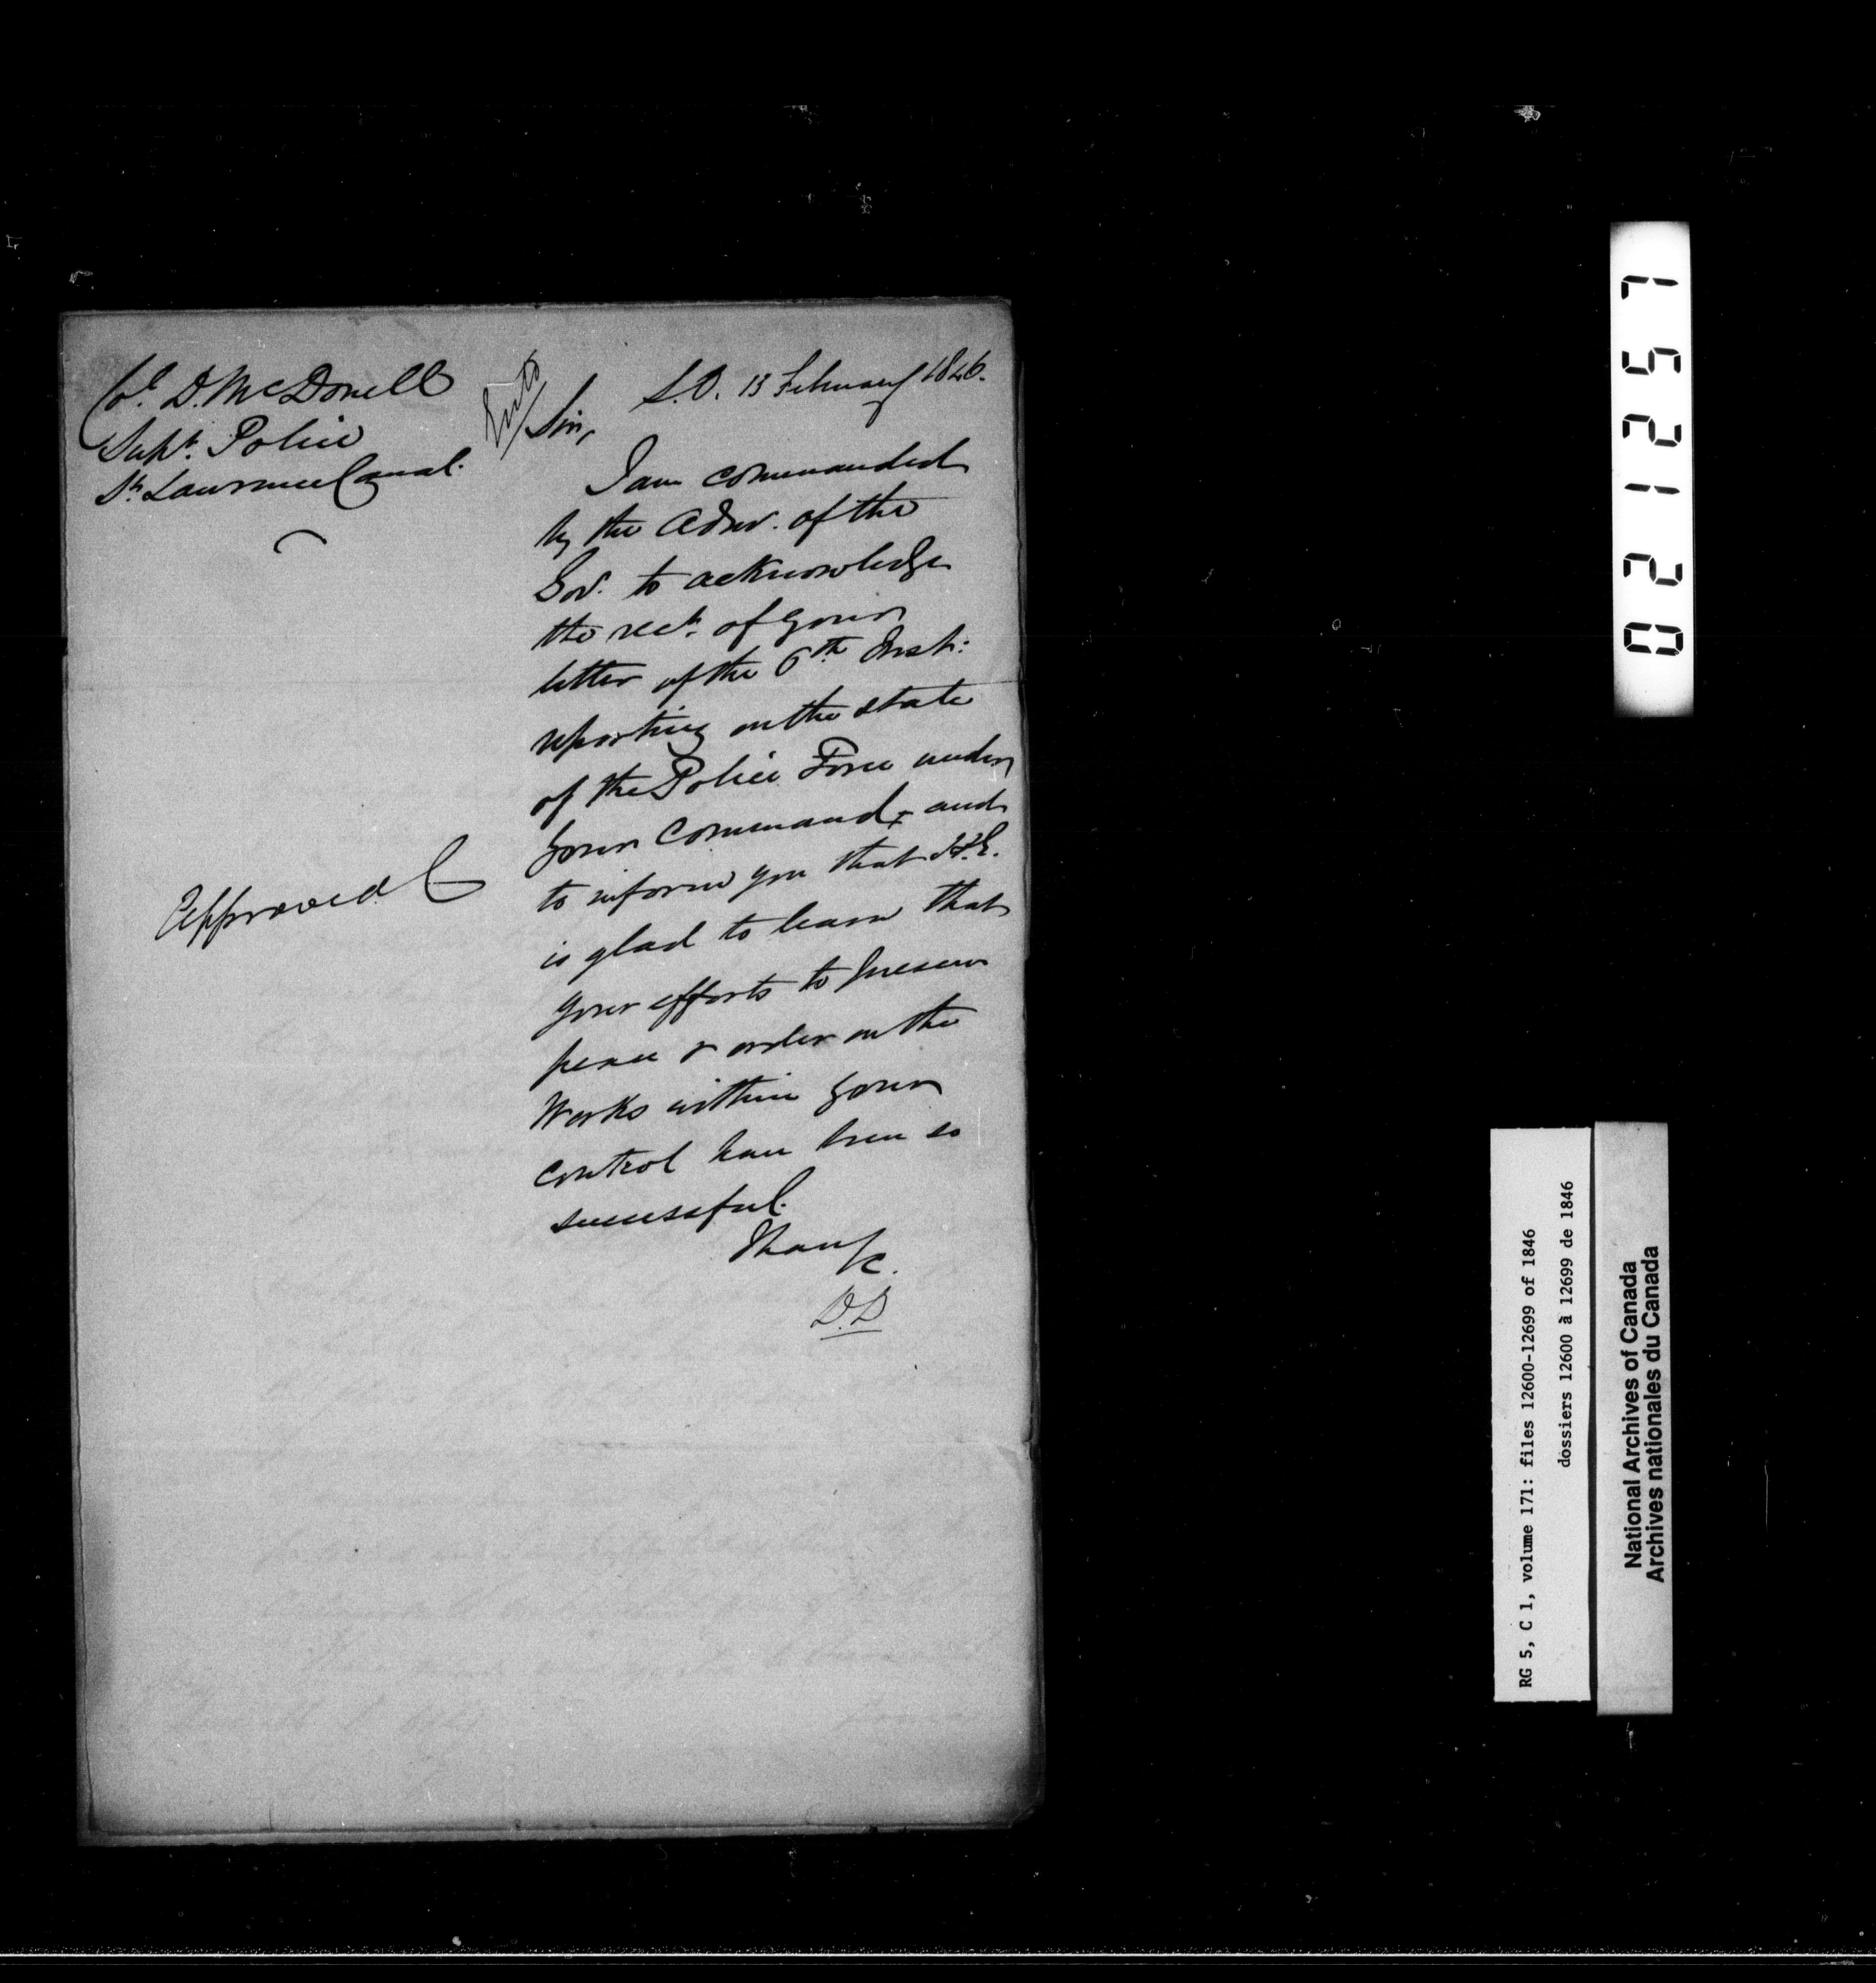 Col. D. McDonell
Supt. Police
St. Lawrence Canal.
S.O. 13 February 1846.
Sir,
I am commanded
by the Admr. of the
Gov. to acknowledge
the rect. of your
letter of the 6th Inst:
reporting on the state
of the Police Force under
your Command, and
to inform you that H.E.
is glad to learn that
your efforts to preserve
peace & order on the
Works within your
control have been so
successful.
I have &c.
D.D
Approved C
021257
RG 5, C 1, volume 171: files 12600-12699 of 1846
dossiers 12600 à 12699 de 1846
National Archives of Canada
Archives nationales du Canada